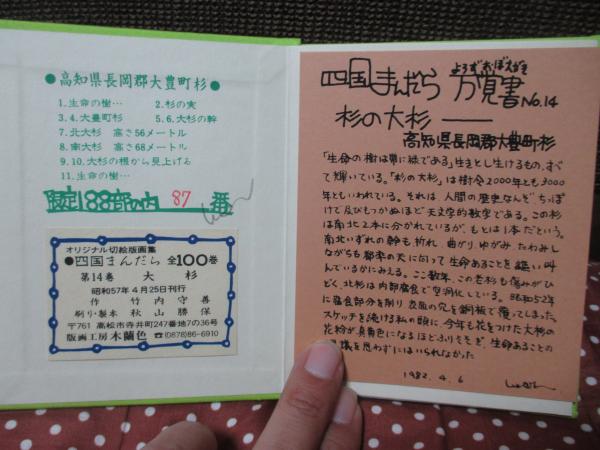 ●高知県長岡郡大豊町杉●
1.生命の樹…　2.杉の実
3.4.大豊町杉　5.6.大杉の幹
7.北大杉　高さ56メートル
8.南大杉　高さ68メートル
9.10.大杉の根から見上げる
11.生命の樹…
限定188部の内 87 番
オリジナル切絵版画集
●四国まんだら 全100巻
第14巻　大杉
昭和57年4月25日刊行
作　竹内守善
刷り・製本　秋山勝保
〒761 高松市寺井町247番地7の36号
版画工房 木蘭屯 ☎(0878)86-6910
よろずおぼえがき
四国まんだら 万覚書 No.14
杉の大杉――
高知県長岡郡大豊町杉
「生命の樹は常に緑である」生きとし生けるもの、すべ
て輝いている。「杉の大杉」は樹令2000年とも3000
年ともいわれている。それは、人間の歴史なんぞ、ちっぽ
けで及びもつかぬほど天文学的数字である。この杉
は南北2本に分かれているが、もとは1本だという。
南北いずれの幹も折れ、曲がり、ゆがみ、たわみし
ながらも都率の天に向って生命あることを 叫
んでいるかにみえる。ここ数年、この老杉も傷みがひ
どく、北杉は内部腐食で空洞化している。昭和52年
に腐食部分を削り、衣服の穴を銅板で覆ってしまった。
スケッチを続ける私の頭に、今年も花をつけた大杉の
花粉が、真黄色になるほどふりそそぎ、生命あることの
議を思わずにはいられなかった
1982.4.6